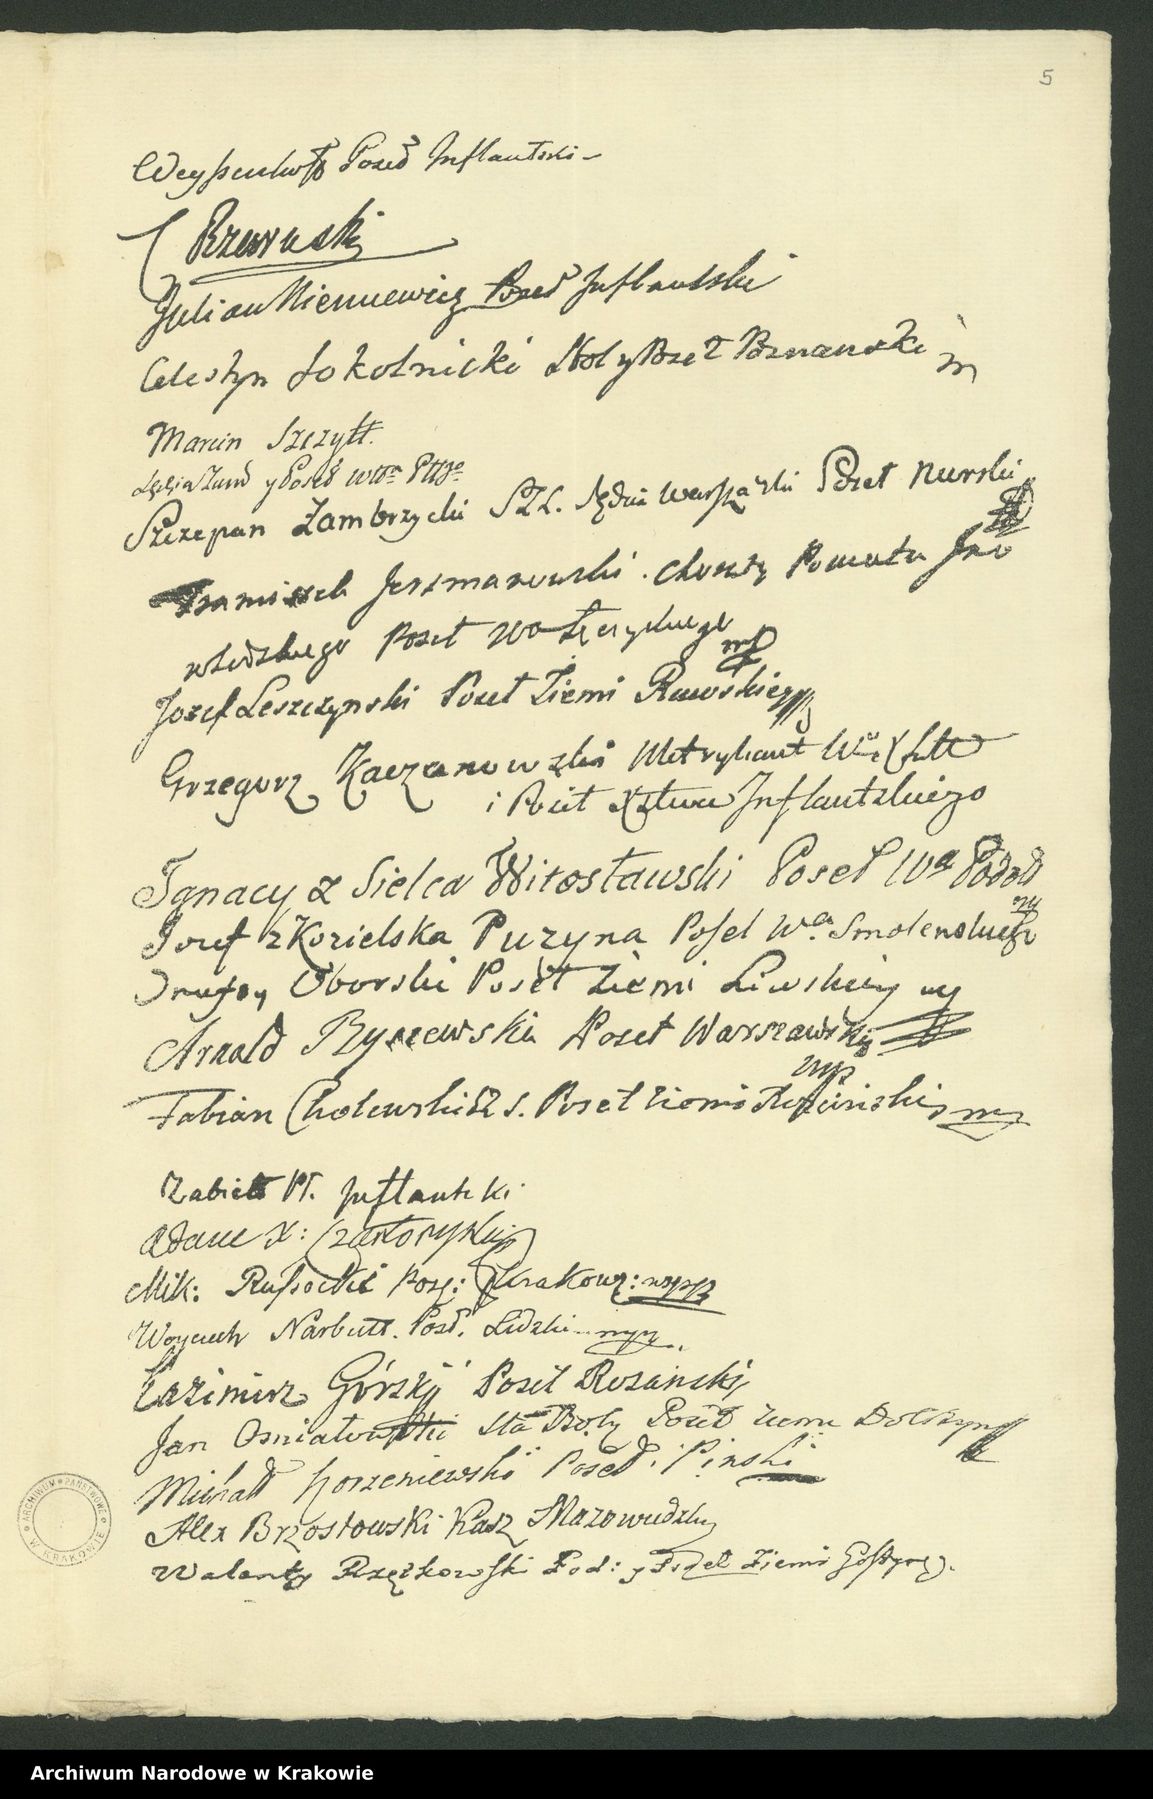 5
Weyssenhoff Poseł Inflantski
Rzewuski
Julian Niemcewicz Poseł Inflantski
Celestyn Sokolnicki Poseł Poznanski
Marcin Szczytt
Sędzia y Poseł
Szczepan Zambrzycki Sędzia Poseł Nurski
Jerzmanowski Powiatu
Poseł
Jozef Leszczynski Poseł Ziemi Rawskiey
Grzegorz Kaczanowski Metrykant
i Poseł Xstwa Inflantskiego
Ignacy z Sielca Witosławski Poseł Wa Podol
Jozef z Kozielska Puzyna Poseł Wa Smolenskiego
Onufry Oborski Poseł Ziemi Liwskiey
Arnold Byszewski Poseł Warszawski
mp
Fabian Cholewski Poseł ziemi
Zabiełł Pł. Inflantski
Adam X: Czartoryski
Mik: Russocki Pos: Krakow: mppr
Woyciech Narbutt. Posł. Lidzki mpp
Kazimierz Górski Poseł Rosański
Jan Osniałowski Poseł ziemi Dobrzyn
Michał Korzeniewski Poseł Pinski
Alex Brzostowski Kasz Mazowiecki
Walenty Rzętkowski Pod: y Poseł Ziemi Gostyn
ARCHIWUM PAŃSTWOWE W KRAKOWIE
Archiwum Narodowe w Krakowie